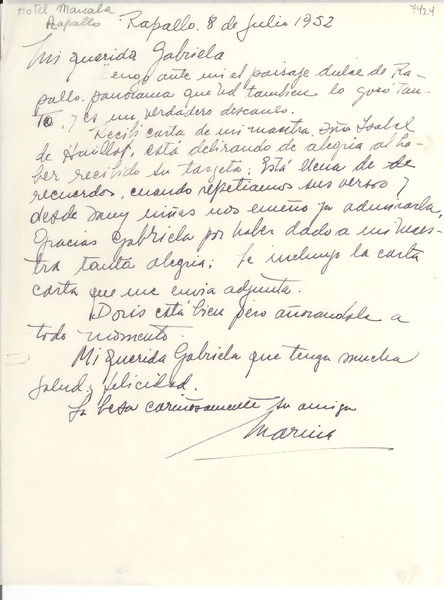 Hotel Marsala
Rapallo
7424
Rapallo. 8 de Julio 1952
Mi querida Gabriela
Tengo ante mi el paisaje dulce de Ra-
pallo. panorama que Ud tambien lo gozó tan-
to, y es un verdadero descanso.
Recibí carta de mi maestra, Isabel
de, está delirando de alegria al ha-
ber recibido su tarjeta; Está llena de de
recuerdos, cuando repetiamos sus versos y
desde muy niñas nos enseño ya admirarla,
Gracias Gabriela por haber dado a mi Maes-
tra tanta alegria; le incluyo la carta
carta que me envia adjunta.
Doris está bien pero añorandola a
todo momento.
Mi querida Gabriela que tenga mucha
salud y felicidad.
La besa cariñosamente su amiga
Marina